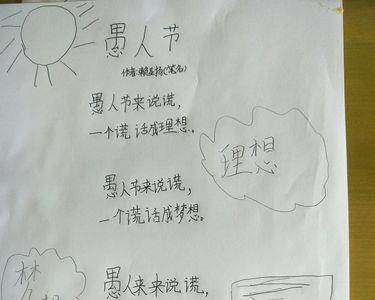 愚人节
愚人节来说谎,
一个谎话成理想。
理想
愚人节来说谎,
一个谎话成梦想。
愚人来来说谎,
林